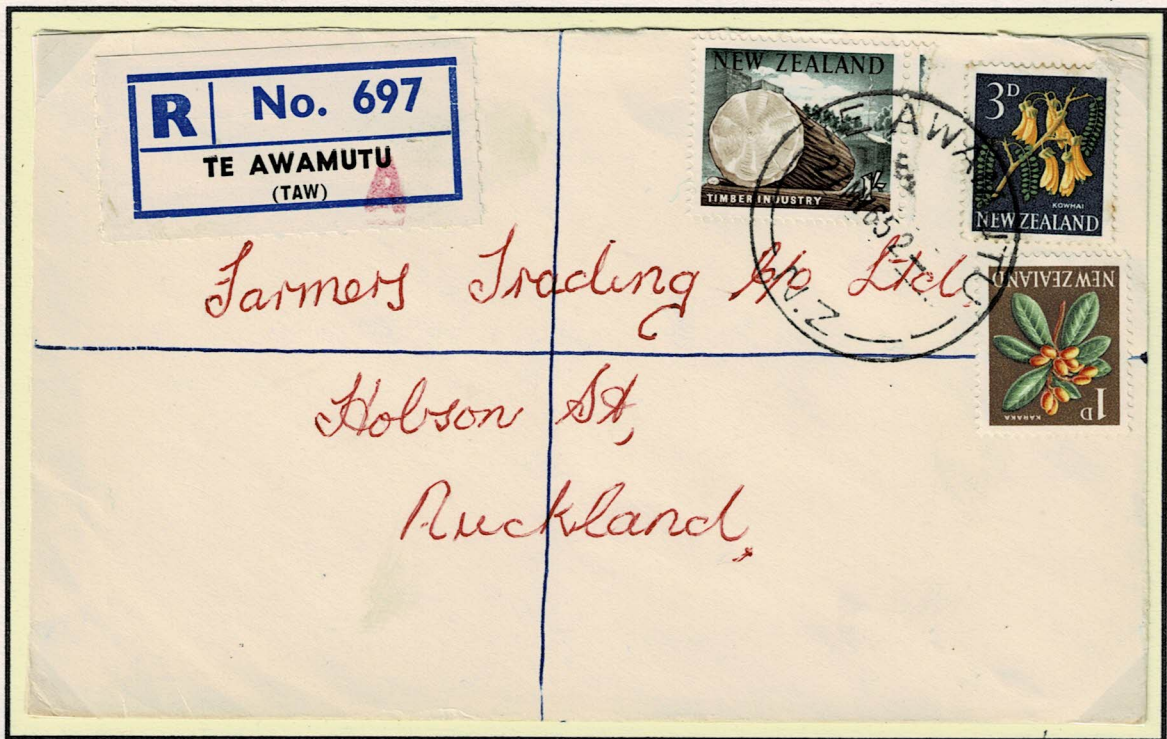 R No. 697
TE AWAMUTU
(TAW)
A
NEW ZEALAND
1/-
TIMBER INDUSTRY
3D
KOWHAI
NEW ZEALAND
TE AWAMUTU
N.Z.
NEW ZEALAND
KARAKA
1D
Farmers Trading Co Ltd,
Hobson St,
Auckland,